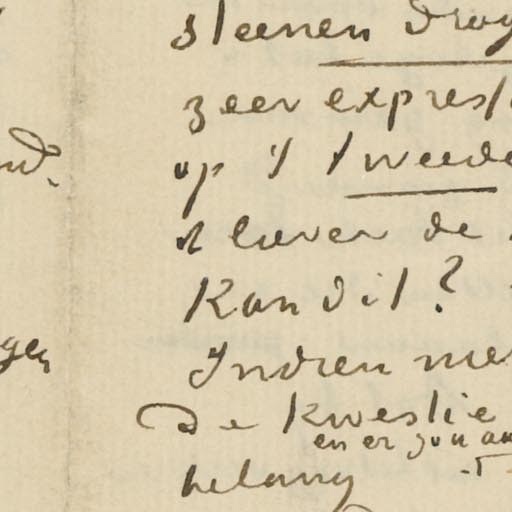 steenen
zeer expres
op 't tweede
't liever de
Kan dit?
Indien
De kwestie
en er zou
belang